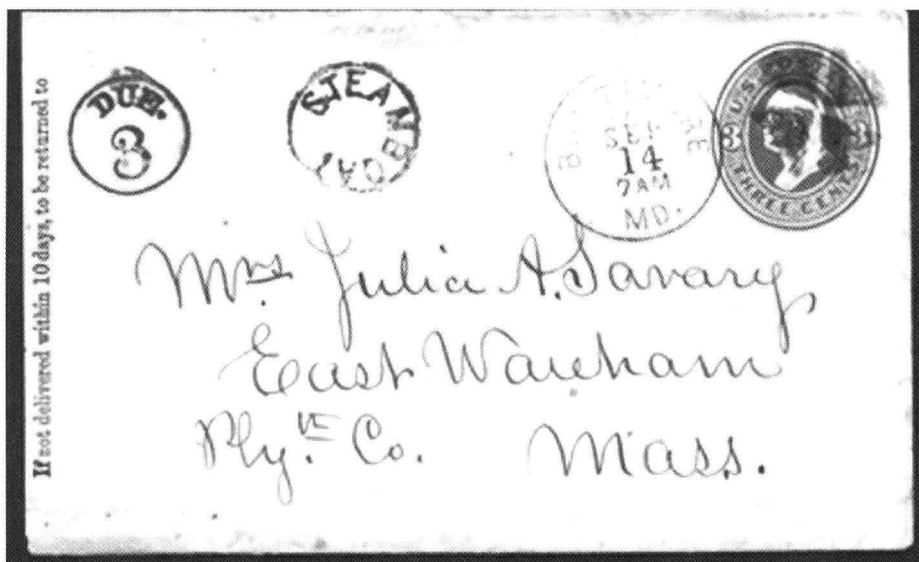 If not delivered within 10 days, to be returned to
DUE.
3
STEAMBOAT
BALTIMORE
SEP
14
7 AM
MD.
U.S. POSTAGE
3 3
THREE CENTS
Mrs. Julia A. Savary,
East Wareham
Ply.th Co. Mass.